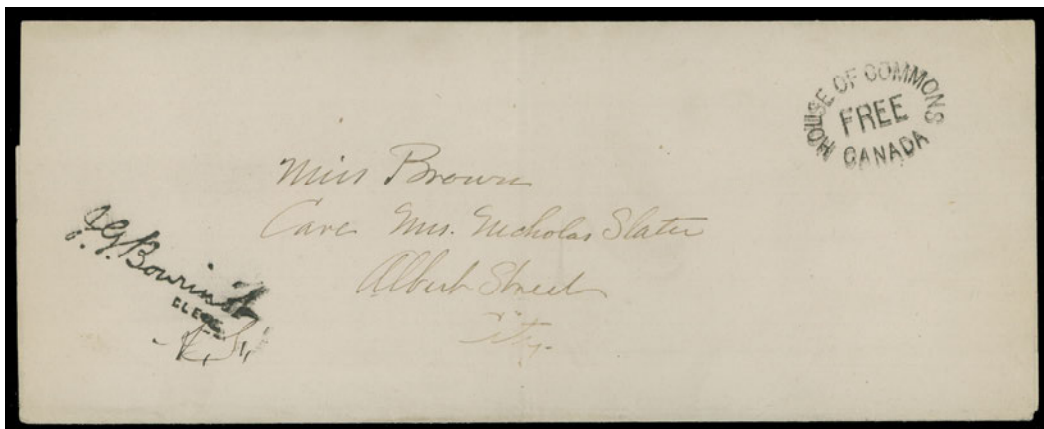 HOUSE OF COMMONS
FREE
CANADA
Miss Brown
Care Mrs. Nicholas Slater
Albert Street
City.
J.G. Bourinot
CLERK